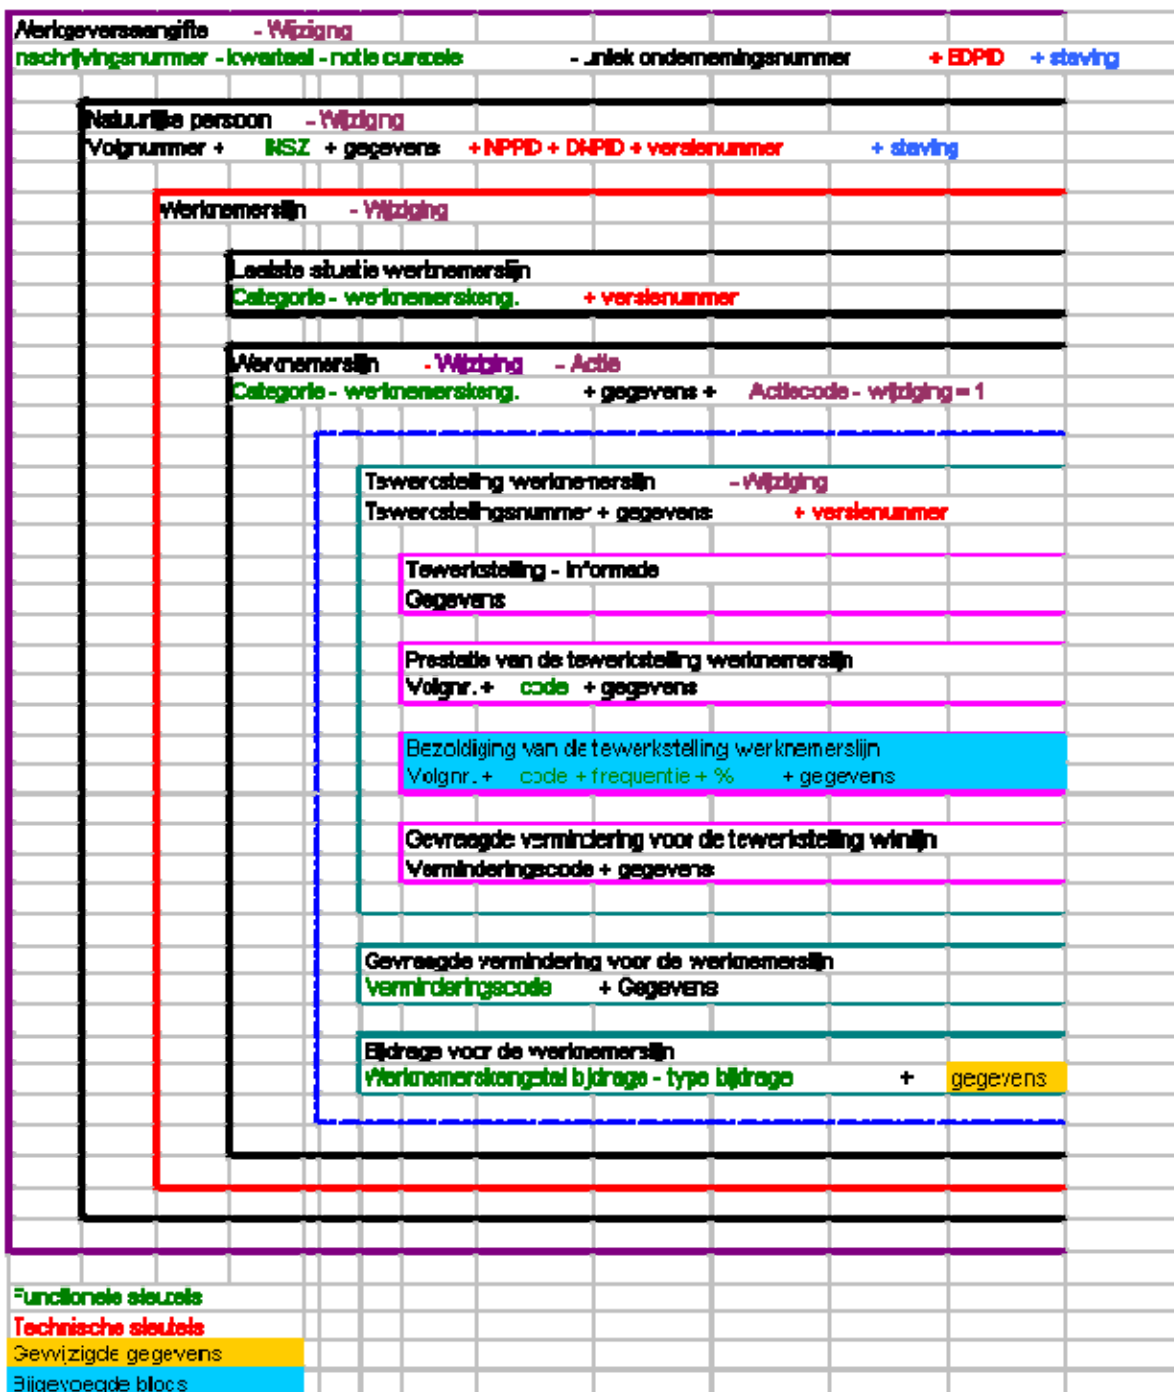 Werkgeversaangifte - Wijzigng
nschrijvingsnummer - kwartaal - notie curatele - uniek ondernemingsnummer + EDPID + staving
Natuurlijke persoon - Wijzigng
Volgnummer + INSZ + gegevens + NPPID + DNPID + versienummer + staving
Werknemerslijn - Wijziging
Laatste situatie werknemerslijn
Categorie - werknemerskeng. + versienummer
Werknemerslijn - Wijziging - Actie
Categorie - werknemerskeng. + gegevens + Actiecode - wijziging = 1
Tewerkstelling werknemerslijn - Wijziging
Tewerkstellingsnummer + gegevens + versienummer
Tewerkstelling - Informatie
Gegevens
Prestatie van de tewerkstelling werknemerslijn
Volgnr. + code + gegevens
Bezoldiging van de tewerkstelling werknemerslijn
Volgnr. + code + frequentie + % + gegevens
Gevraagde vermindering voor de tewerkstelling wknlijn
Verminderingscode + gegevens
Gevraagde vermindering voor de werknemerslijn
Verminderingscode + Gegevens
Bijdrage voor de werknemerslijn
Werknemerskengetal bijdrage - type bijdrage + gegevens
Functionele sleutels
Technische sleutels
Gewijzigde gegevens
Bijgevoegde blocs